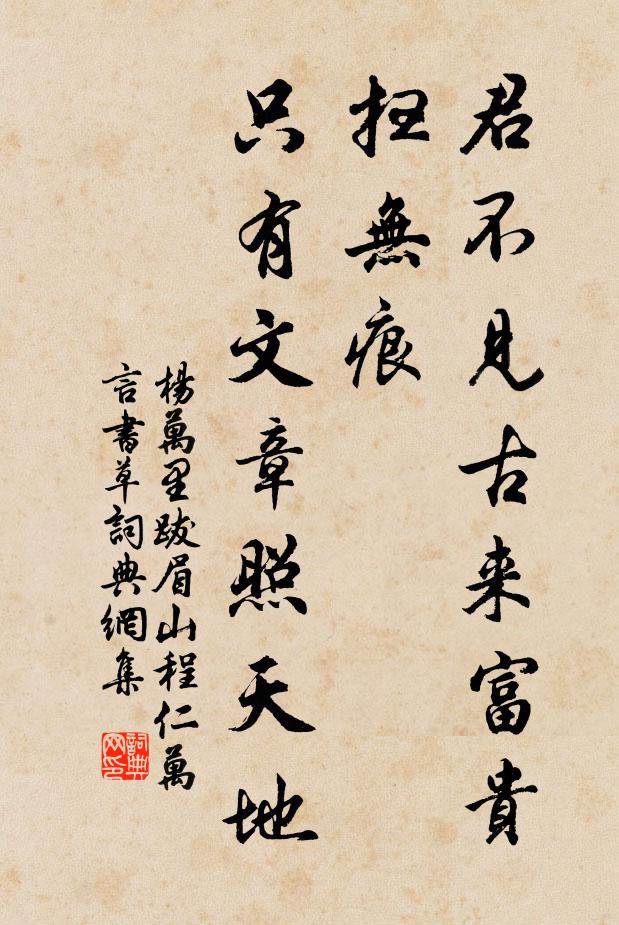 君不見古来富貴
抂無痕
只有文章照天地
楊萬里跋眉山程仁萬
言書草詞典網集
詞典
网印